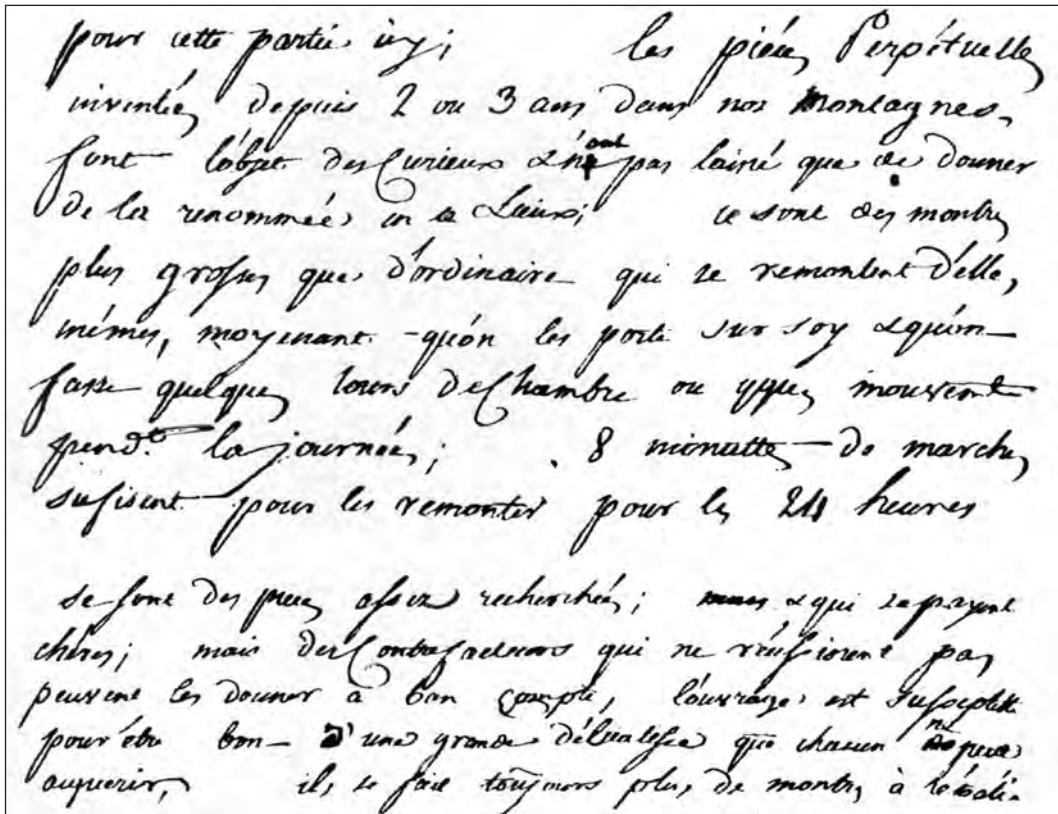 pour cette partie icy; les piéces Perpétuelles
inventées depuis 2 ou 3 ans dans nos Montagnes,
font l'objet des Curieux & n'ont pas laissé que de donner
de la renommée en ce Lieux; ce sont des montres
plus grosses que d'ordinaire qui se remontent d'elle,
mémes, moyenant qu'on les porte sur soy & qu'on
fasse quelques tours de Chambre ou q̃ques mouvemt
pendt. la journée; 8 minuttes de marche,
sufisent pour les remonter pour les 24 heures
se sont des pieces assez recherchées; & qui se payent
chéres; mais des Contrefacteurs qui ne réussissent pas
peuvent les donner à bon compte, l'ouvrage est susceptible
pour étre bon d'une grande délicatesse que chacun ne peut
aquerir, il se fait toujours plus de montres à répéti-